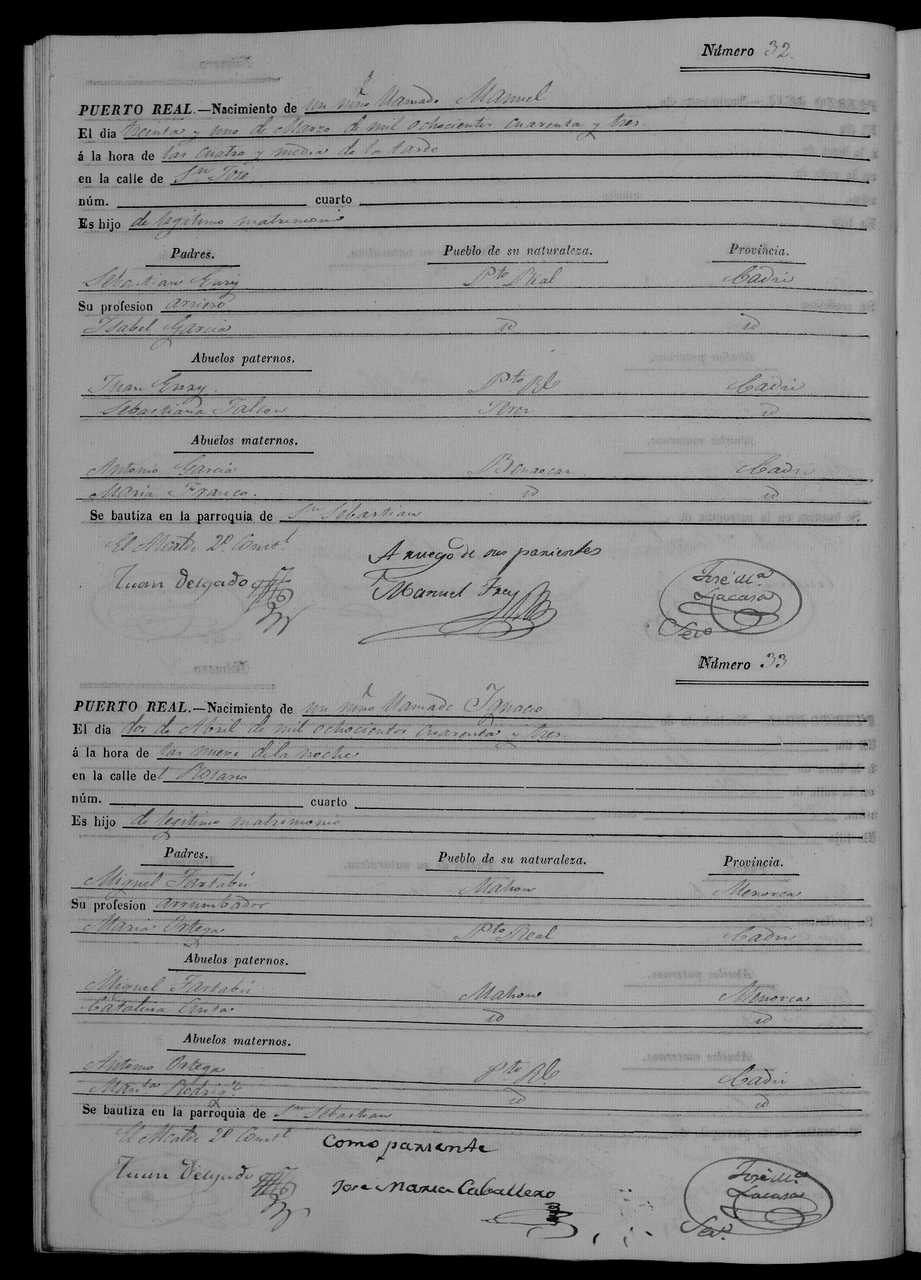 Número 32.
PUERTO REAL.—Nacimiento de un niño llamado Manuel
El dia treinta y uno de Marzo de mil ochocientos cuarenta y tres
á la hora de las cuatro y media de la tarde
en la calle de Sn José
núm. cuarto
Es hijo de legitimo matrimonio
Padres. Pueblo de su naturaleza. Provincia.
Sebastian Pto Real Cadiz
Su profesion arriero
Isabel Garcia id id
Abuelos paternos.
Juan Pto Rl Cadiz
Sebastiana Falcon id
Abuelos maternos.
Antonio Garcia Benaocaz Cadiz
Maria Franco. id id
Se bautiza en la parroquia de Sn Sebastian
El Alcalde 2º Constl
A ruego de sus parientes
Juan Delgado Manuel Frey José Ma Lacasa
Seco
Número 33
PUERTO REAL.—Nacimiento de un niño llamado Ignacio
El dia dos de Abril de mil ochocientos cuarenta y tres
á la hora de las nueve de la noche
en la calle del Rosario
núm. cuarto
Es hijo de legitimo matrimonio
Padres. Pueblo de su naturaleza. Provincia.
Miguel Tartabú Mahon Menorca
Su profesion arrumbador
Maria Ortega Pto Real Cadiz
Abuelos paternos.
Miguel Tartabú Mahon Menorca
Catalina id id
Abuelos maternos.
Antonio Ortega Pto Rl Cadiz
Rodrigz id id
Se bautiza en la parroquia de Sn Sebastian
El Alcalde 2º Constl
Como pariente
Juan Delgado Jose Maria Caballero José Ma Lacasa
Seco.